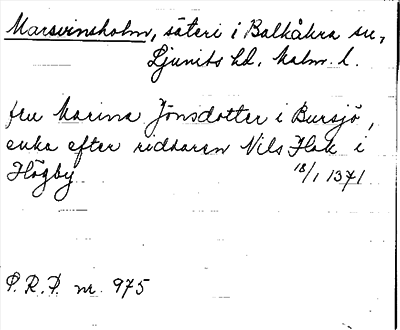 Marsvinsholm, säteri i Balkåkra sn,
Ljunits hd. Malm. l.
fru Marina Jönsdotter i Bursjö,
enka efter riddaren Nils Flak i
Högby 18/1 1371
P.R.P. nr. 975